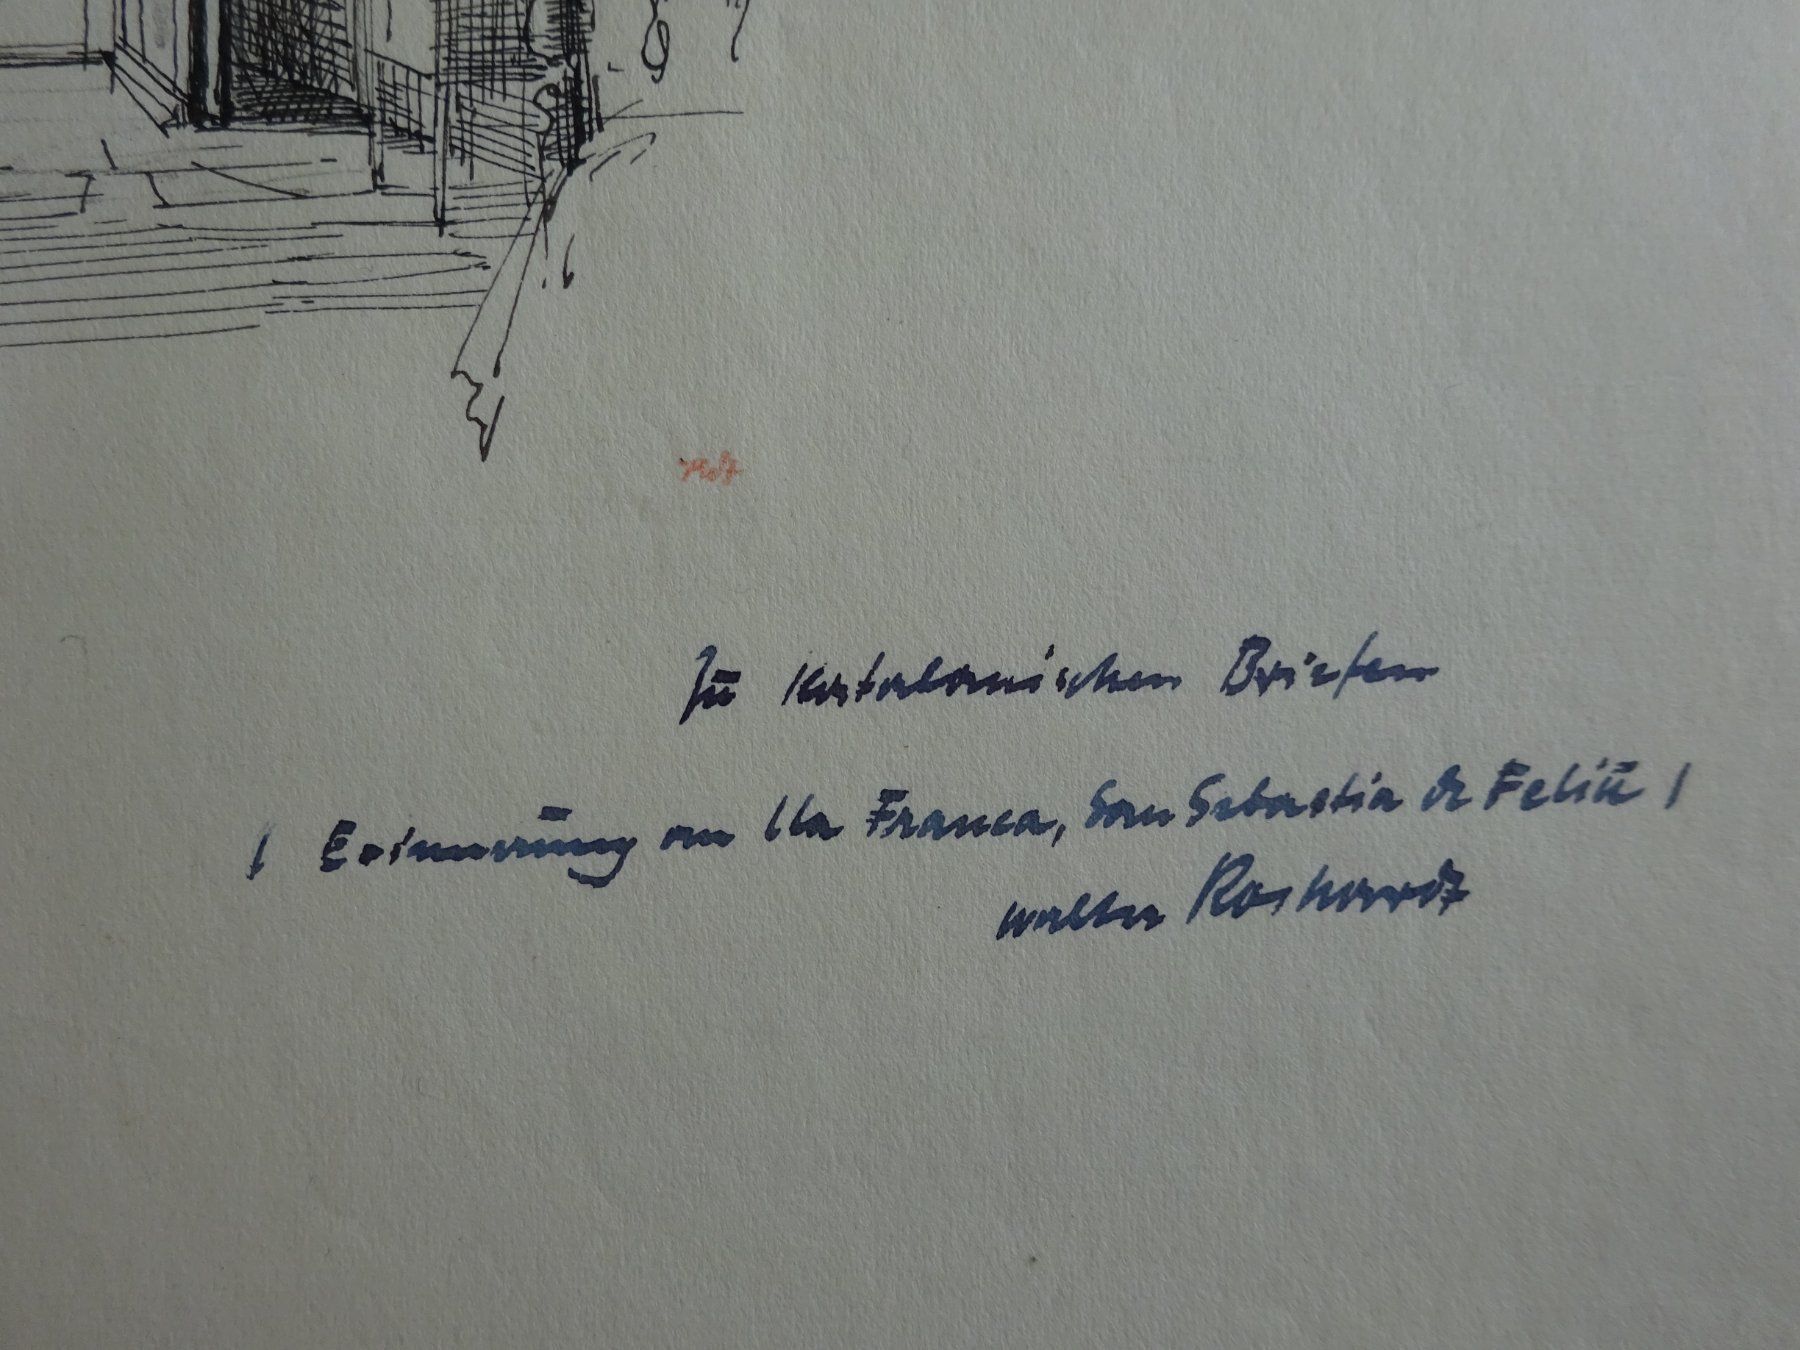 Zu Katalanischen Briefen
( Erinnerung an lla Franca, San Sebastia de Feliu )
Walter Roshardt